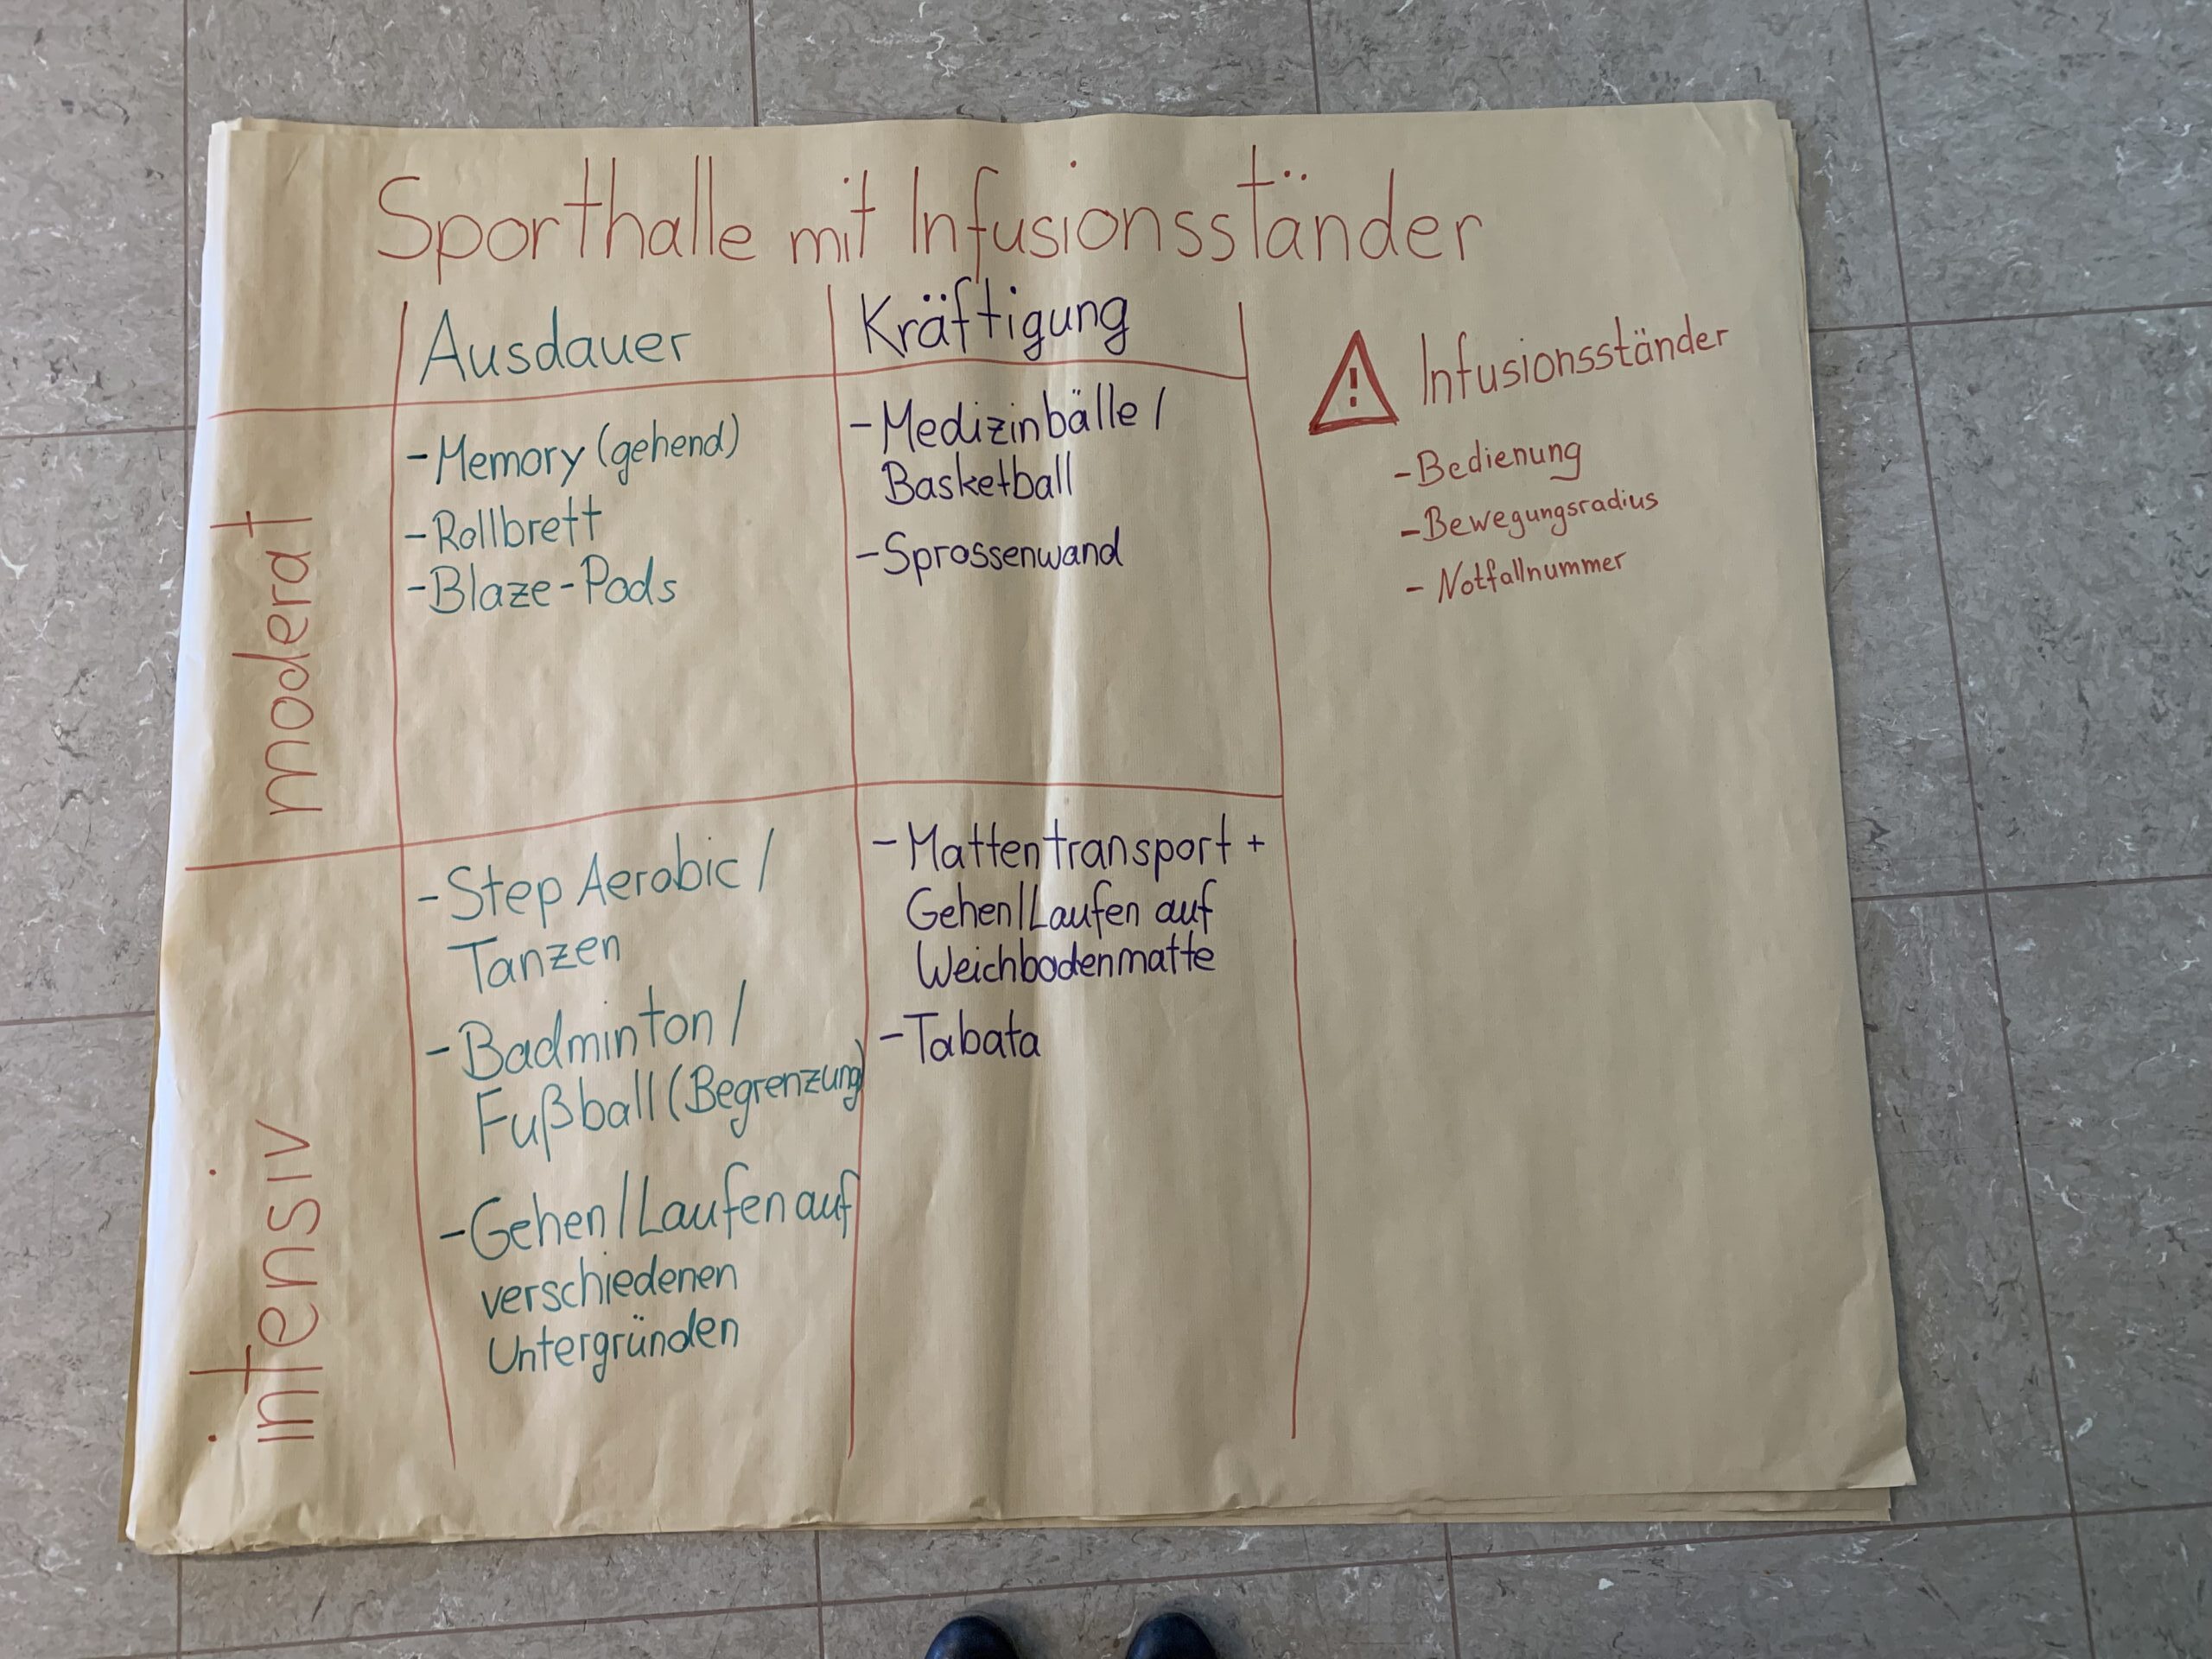 Sporthalle mit Infusionsständer
Ausdauer
Kräftigung
moderat
- Memory (gehend)
- Rollbrett
- Blaze-Pods
- Medizinbälle /
Basketball
- Sprossenwand
intensiv
- Step Aerobic /
Tanzen
- Badminton /
Fußball (Begrenzung)
- Gehen/Laufen auf
verschiedenen
Untergründen
- Mattentransport +
Gehen/Laufen auf
Weichbodenmatte
- Tabata
! Infusionsständer
- Bedienung
- Bewegungsradius
- Notfallnummer